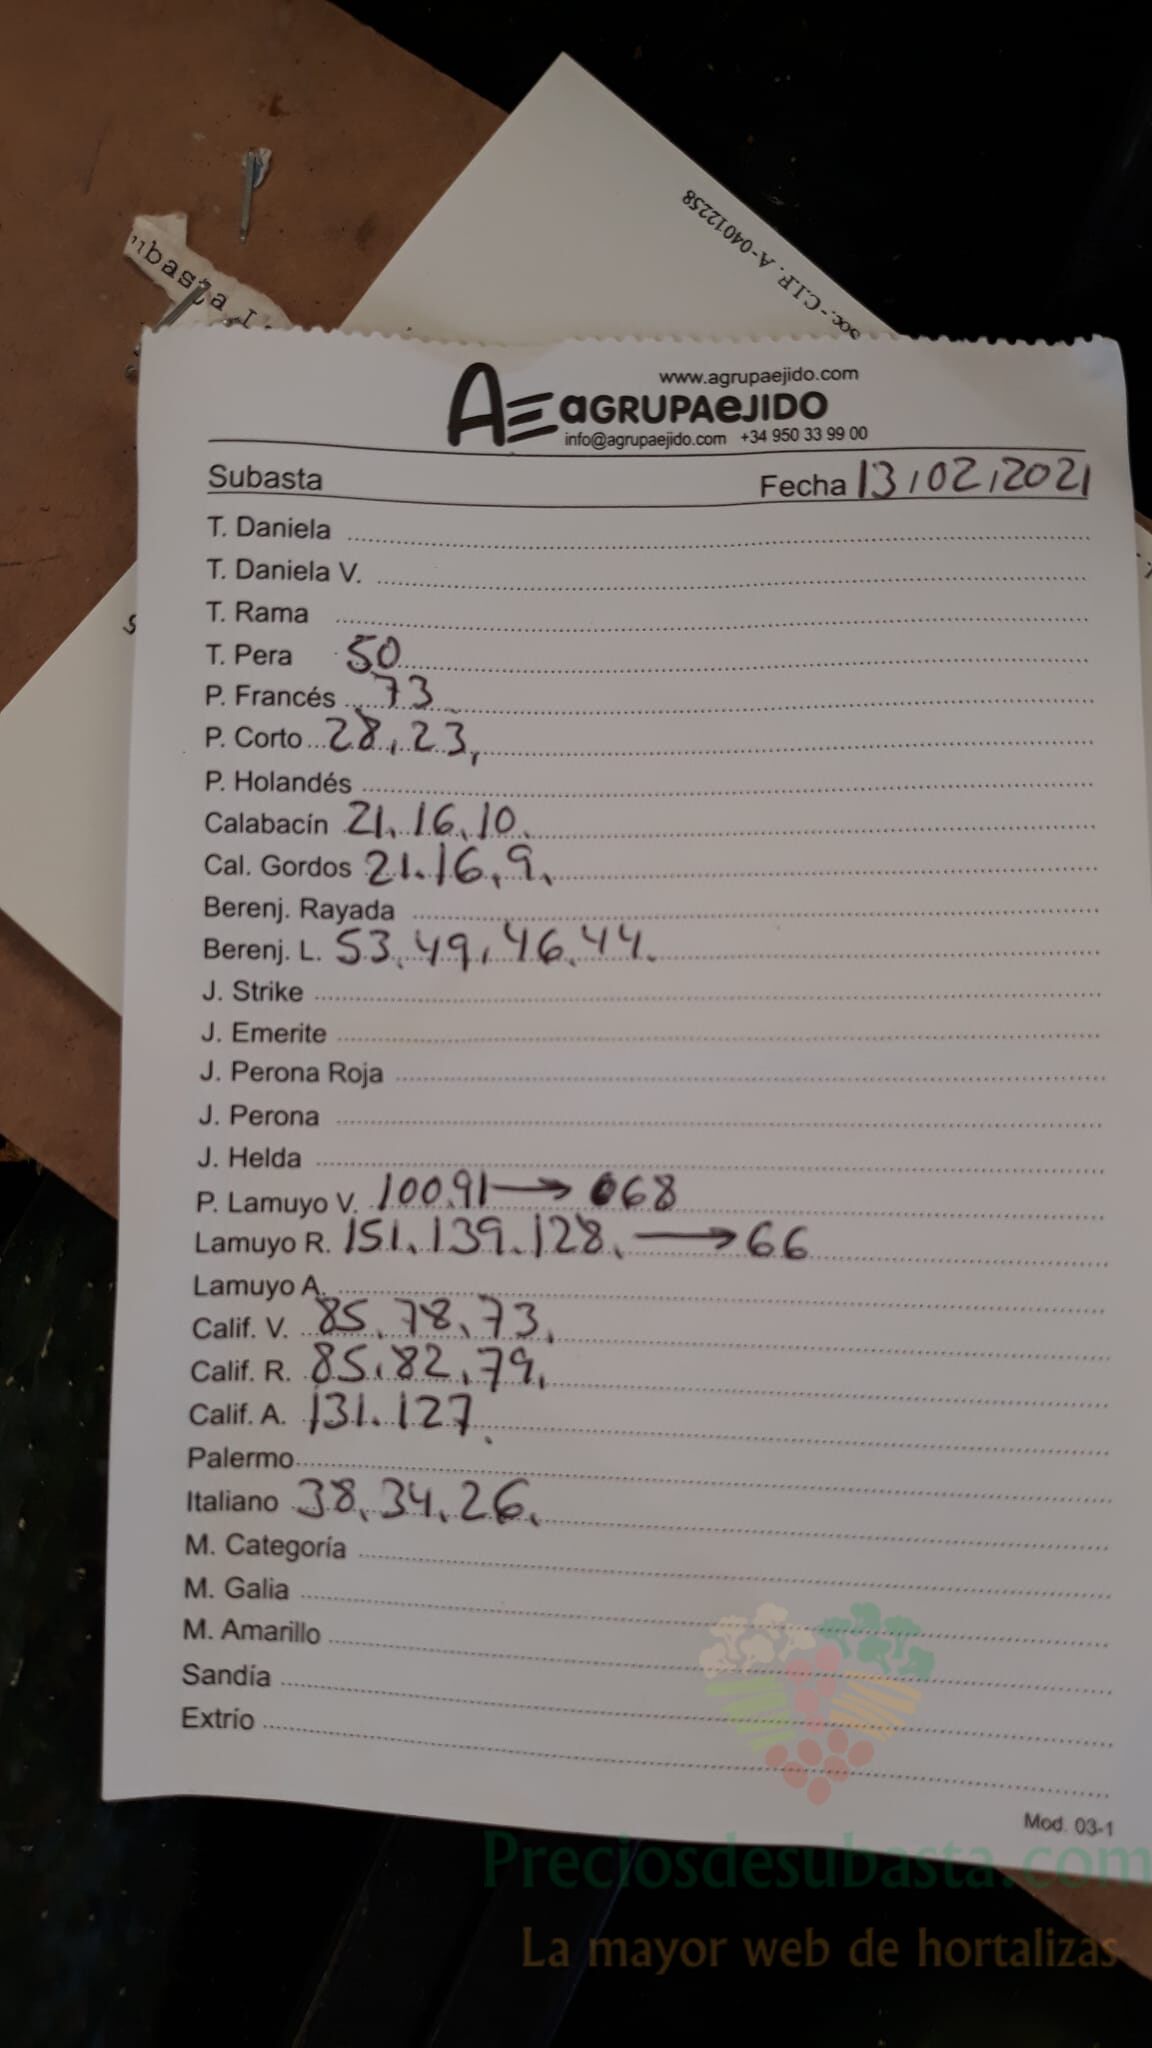 Soc.- C.I.F. A-04012258
ubasta
www.agrupaejido.com
AE AGRUPAEJIDO
info@agrupaejido.com +34 950 33 99 00
Subasta Fecha 13/02/2021
T. Daniela
T. Daniela V.
T. Rama
T. Pera 50
P. Francés 73
P. Corto 28, 23,
P. Holandés
Calabacín 21, 16, 10.
Cal. Gordos 21. 16, 9,
Berenj. Rayada
Berenj. L. 53, 49, 46, 44.
J. Strike
J. Emerite
J. Perona Roja
J. Perona
J. Helda
P. Lamuyo V. 100.91 → 068
Lamuyo R. 151, 139. 128, → 66
Lamuyo A.
Calif. V. 85, 78, 73,
Calif. R. 85, 82, 79,
Calif. A. 131. 127.
Palermo
Italiano 38, 34, 26,
M. Categoría
M. Galia
M. Amarillo
Sandía
Extrío
Mod. 03-1
Preciosdesubasta.com
La mayor web de hortalizas